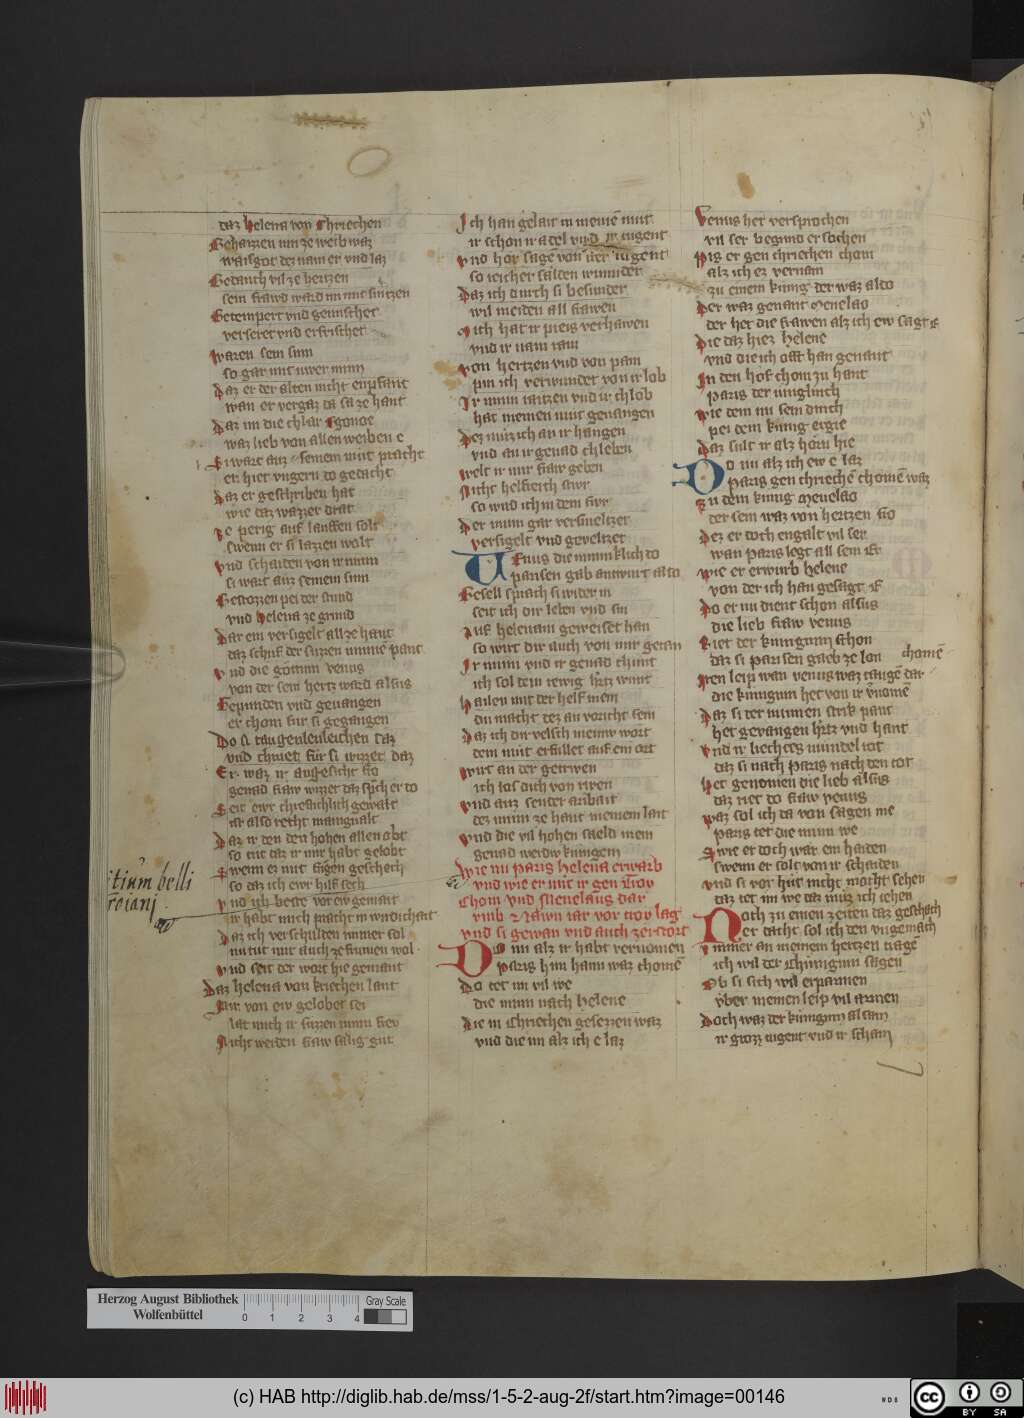 daz helena von Chriechen
Gehaizzen im ze weib waz
waifgot dez nam er vnd laz
Gedauch vil ze hertzen
sein frawd ward im mit smtzen
Getempert vnd gemischet
verseret vnd erfrischet
waren sein sinn
so gar mit iwer minn
Daz er der alten nicht enphant
wan er vergaz da sa ze hant
Daz im die chlar Egonoe
waz lieb von allen weiben e
Si ware auz seinem mut pracht
er hiet vngern do gedacht
Daz er geschriben hat
wie daz wazzer drat
ze perig auf lauffen solt
swenn er si lazzen wolt
vnd schaiden von ir minn
si wart auz seinem sinn
Gestozzen pei der stund
vnd helena ze grund
Dar ein versigelt all ze hant
daz schuf der suzzen minne pant
vnd die gotinn venus
von der sein hertz ward alsus
Gepunden vnd geuangen
er chom fur si gegangen
Do si taugenleuleichen daz
vnd chniet fur si wizzet daz
Er waz ir angesicht fro
genad fraw wizzet daz sprich er do
Seit ewr chreftichlich gewalt
ist also recht manigualt
Daz ir den den hohen allen obt
so tut daz ir mir habt gelobt
Swenn ez mit fugen geschech
so daz ich ewr hilf sech
vnd ich beste vor ew gemait
ir habt mich pracht in wndichait
Daz ich verschulden immer sol
nu tut mir auch ze frumen wol
vnd seit der wort hie gemant
Daz helena von kriechen lant
Mir von ew gelobet sei
lat mich ir suzzen minn frey
Nicht werden fraw salig gut
Ich han gelait in meine mut
ir schon ir adel vnd ir tugent
vnd hor sage von ir tugent
so reicher salden wunnder
Daz ich durch si besunder
wil meiden all frawen
Mich hat ir preis verhawen
vnd ir nam rain
von hertzen vnd von pain
pin ich verwundet von ir lob
Ir minn raitzen vnd ir chlob
hat meinen mut geuangen
Dez muz ich an ir hangen
vnd an ir genad chleben
welt ir mir fraw geben
Nicht helfreich stwr
so wnd ich in dem fiwr
Der minn gar versmeltzet
versigelt vnd geveltzet
Venus die minniklich do
parisen gab antwurt also
Gesell sprach si wider in
seit ich dir leben vnd sin
Auf helenam geweiset han
so wirt dir auch von mir getan
Ir minn vnd ir genad chunt
ich sol dein rewig hertz wunt
Hailen mit der helf mein
du macht dez an vorcht sein
Daz ich dir velsch meinew wort
dem mut erfullet auf ein ort
wirt an der getrwen
ich los dich von riwen
vnd auz sender aribait
dez minn ze hant meinem lait
vnd die vil hohen saeld mein
genad werdiw kunigein
Wie nu paris helena erwarb
vnd wie er mit ir gen Troy
Chom vnd Menelaus dar
vmb zwain iar vor troy lag
vnd si gewan vnd auch zerstort
Do nu alz ir habt vernomen
paris hin haim waz chome
Do tet im vil we
die minn nach helene
Die in Chriechen gesezzen waz
vnd die im alz ich e laz
Venus het versprochen
vil ser begund er sochen
Piz er gen chriechen chom
alz ich ez vernam
zu einem kunig der waz aldo
Der waz genant Menelao
der het die frawen alz ich ew sagt e
Die daz hiez helene
vnd die ich offt han genant
In den hof chom zu hant
paris der iunglinch
wie dem nu sein dinch
pei dem kunig ergie
Daz sult ir alz horn hie
Do nu alz ich ew e laz
paris gen chrieche chome waz
Zu dem kunig Menelao
der sein waz von hertzen fro
Dez er doch engalt vil ser
wan paris legt all sein er
wie er erwurb helene
von der ich han gesagt e
Do er nu dient schon alsus
die lieb fraw venus
Riet der kuniginn schon
daz si parisen gaeb ze lon chome
Iren leip wan venus waz tauge dar
die kuniginn het von ir vnome
Daz si der minnen strik pant
het gevangen hertz vnd hant
vnd ir liechtes mundel rot
daz si nach paris nach den tot
Het genomen die lieb alsus
daz riet do fraw venus
waz sol ich da von sagen me
paris tet die minn we
Swie er doch war ein haiden
swenn er solt von ir schaiden
vnd si vor hut nicht mocht sehen
daz tet im we daz muz ich iehen
Noch zu einen zeiten daz geschach
er dacht sol ich den vngemach
Immer an meinem hertzen trage
ich wil der Chuniginn sagen
Ob si sich wil erparmen
vber meinen leip vil armen
Doch waz der kuniginn alsam
ir grozz tugent vnd ir scham
itium belli
roiani
Herzog August Bibliothek
Wolfenbüttel
0 1 2 3 4
Gray Scale
(c) HAB http://diglib.hab.de/mss/1-5-2-aug-2f/start.htm?image=00146
WD6
cc BY SA